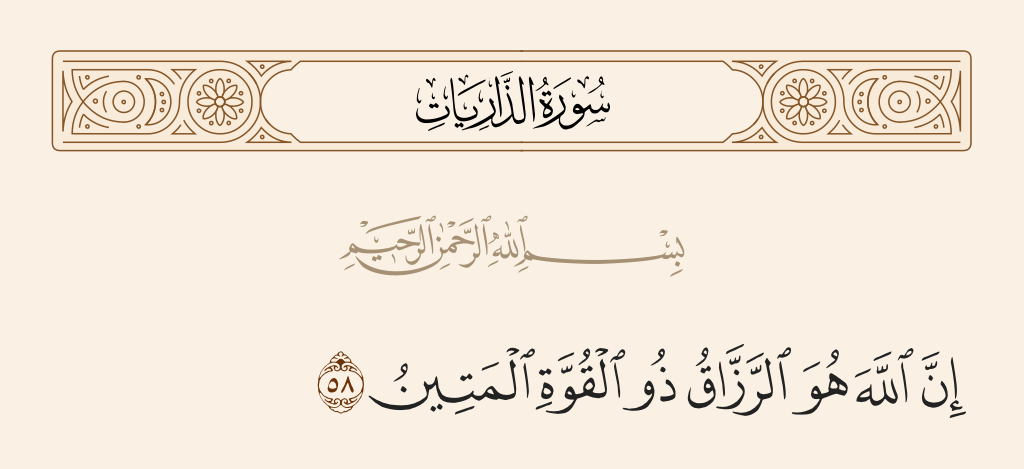 سُورَةُ الذَّارِيَاتِ
بِسْمِ ٱللَّهِ ٱلرَّحْمَٰنِ ٱلرَّحِيمِ
إِنَّ ٱللَّهَ هُوَ ٱلرَّزَّاقُ ذُو ٱلْقُوَّةِ ٱلْمَتِينُ ٥٨